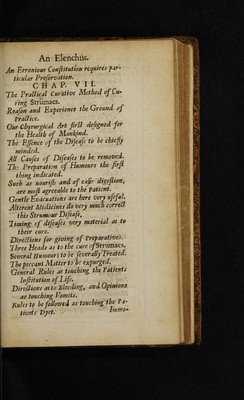 An Elenchus.
An Erronious Constitution requires par-
ticular Preservation.
CHAP. VII.
The Practical Curative Method of Cu-
ring Strumaes.
Reason and Experience the Ground of
Practice.
Our Chyrurgical Art first designed for
the Health of Mankind.
The Essence of the Disease to be chiefly
minded.
All Causes of Diseases to be removed.
The Preparation of Humours the first
thing indicated.
Such as nourish and of easie digestion,
are most agreeable to the Patient.
Gentle Evacuations are here very useful.
Alterent Medicines do very much correct
this Strumous Disease.
Timing of diseases very material as to
their cure.
Directions for giving of Preparatives.
Three Heads as to the cure of Strumaes.
Several Humours to be severally Treated.
The peccant Matter to be expurged.
General Rules as touching the Patients
Institution of Life.
Directions as to Bleeding, and Opinions
as touching Vomits.
Rules to be followed as touching the Pa-
tients Dyet.